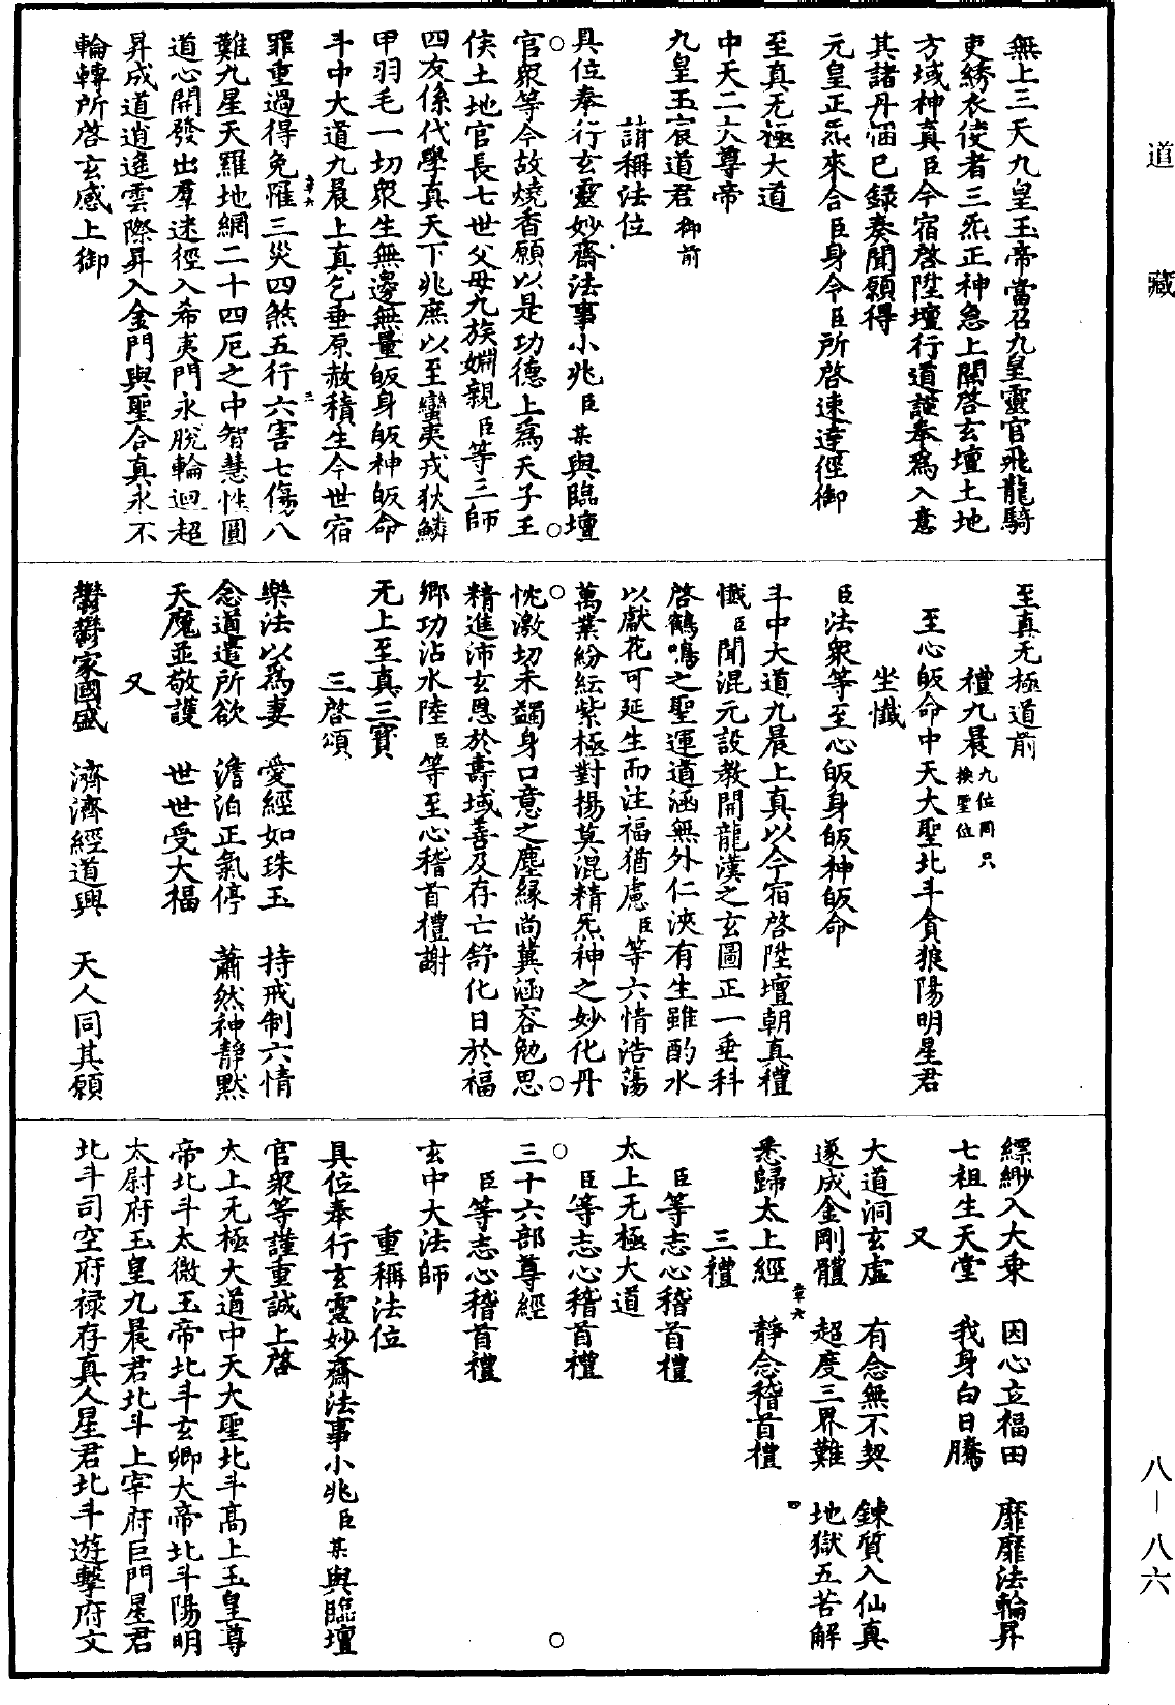 道藏
無上三天九皇玉帝當召九皇靈官飛龍騎
吏綉衣使者三炁正神急上關啓玄壇土地
方域神真臣今宿啓陞壇行道謹奉爲入意
其諸丹悃已録奏聞願得
元皇正炁來合臣身今臣所啓速達徑御
至真无極大道
中天二六尊帝
九皇玉宸道君御前
請稱法位
具位奉行玄靈妙齋法事小兆臣某與臨壇
官衆等今故燒香願以是功德上爲天子王
侯土地官長七世父母九族姻親臣等三師
四友係代學真天下兆庶以至蠻夷戎狄鱗
甲羽毛一切衆生無邊無量皈身皈神皈命
斗中大道九晨上真乞垂原赦積生今世宿
罪重過得免罹三災四煞五行六害七傷八
難九星天羅地網二十四厄之中智慧性圓
道心開發出羣迷徑入希夷門永脫輪迴超
昇成道逍遥雲際昇入金門與聖合真永不
輪轉所啓玄感上御
至真无極道前
禮九晨九位同只換聖位
至心皈命中天大聖北斗貪狼陽明星君
坐懺
臣法衆等至心皈身皈神皈命
斗中大道九晨上真以今宿啓陞壇朝真禮
懺臣聞混元設教開龍漢之玄圖正一垂科
啓鶴鳴之聖運道涵無外仁浹有生雖酌水
以獻花可延生而注福猶慮臣等六情浩蕩
萬業紛紜紫極對揚莫混精炁神之妙化丹
忱激切未蠲身口意之塵緣尚冀涵容勉思
精進沛玄恩於壽域善及存亡舒化日於福
鄉功沾水陸臣等至心稽首禮謝
无上至真三寶
三啓頌
樂法以爲妻　愛經如珠玉　持戒制六情
念道遣所欲　澹泊正氣停　蕭然神靜默
天魔並敬護　世世受大福
又
鬱鬱家國盛　濟濟經道興　天人同其願
縹緲入大乘　因心立福田　靡靡法輪昇
七祖生天堂　我身白日騰
又
大道洞玄虛　有念無不契　鍊質入仙真
遂成金剛體　超度三界難　地獄五苦解
悉歸太上經　靜念稽首禮
三禮
臣等志心稽首禮
太上无極大道
臣等志心稽首禮
三十六部尊經
臣等志心稽首禮
玄中大法師
重稱法位
具位奉行玄靈妙齋法事小兆臣某與臨壇
官衆等謹重誠上啓
太上无極大道中天大聖北斗高上玉皇尊
帝北斗太微玉帝北斗玄卿大帝北斗陽明
太尉府玉皇九晨君北斗上宰府巨門星君
北斗司空府禄存真人星君北斗遊擊府文
八—八六